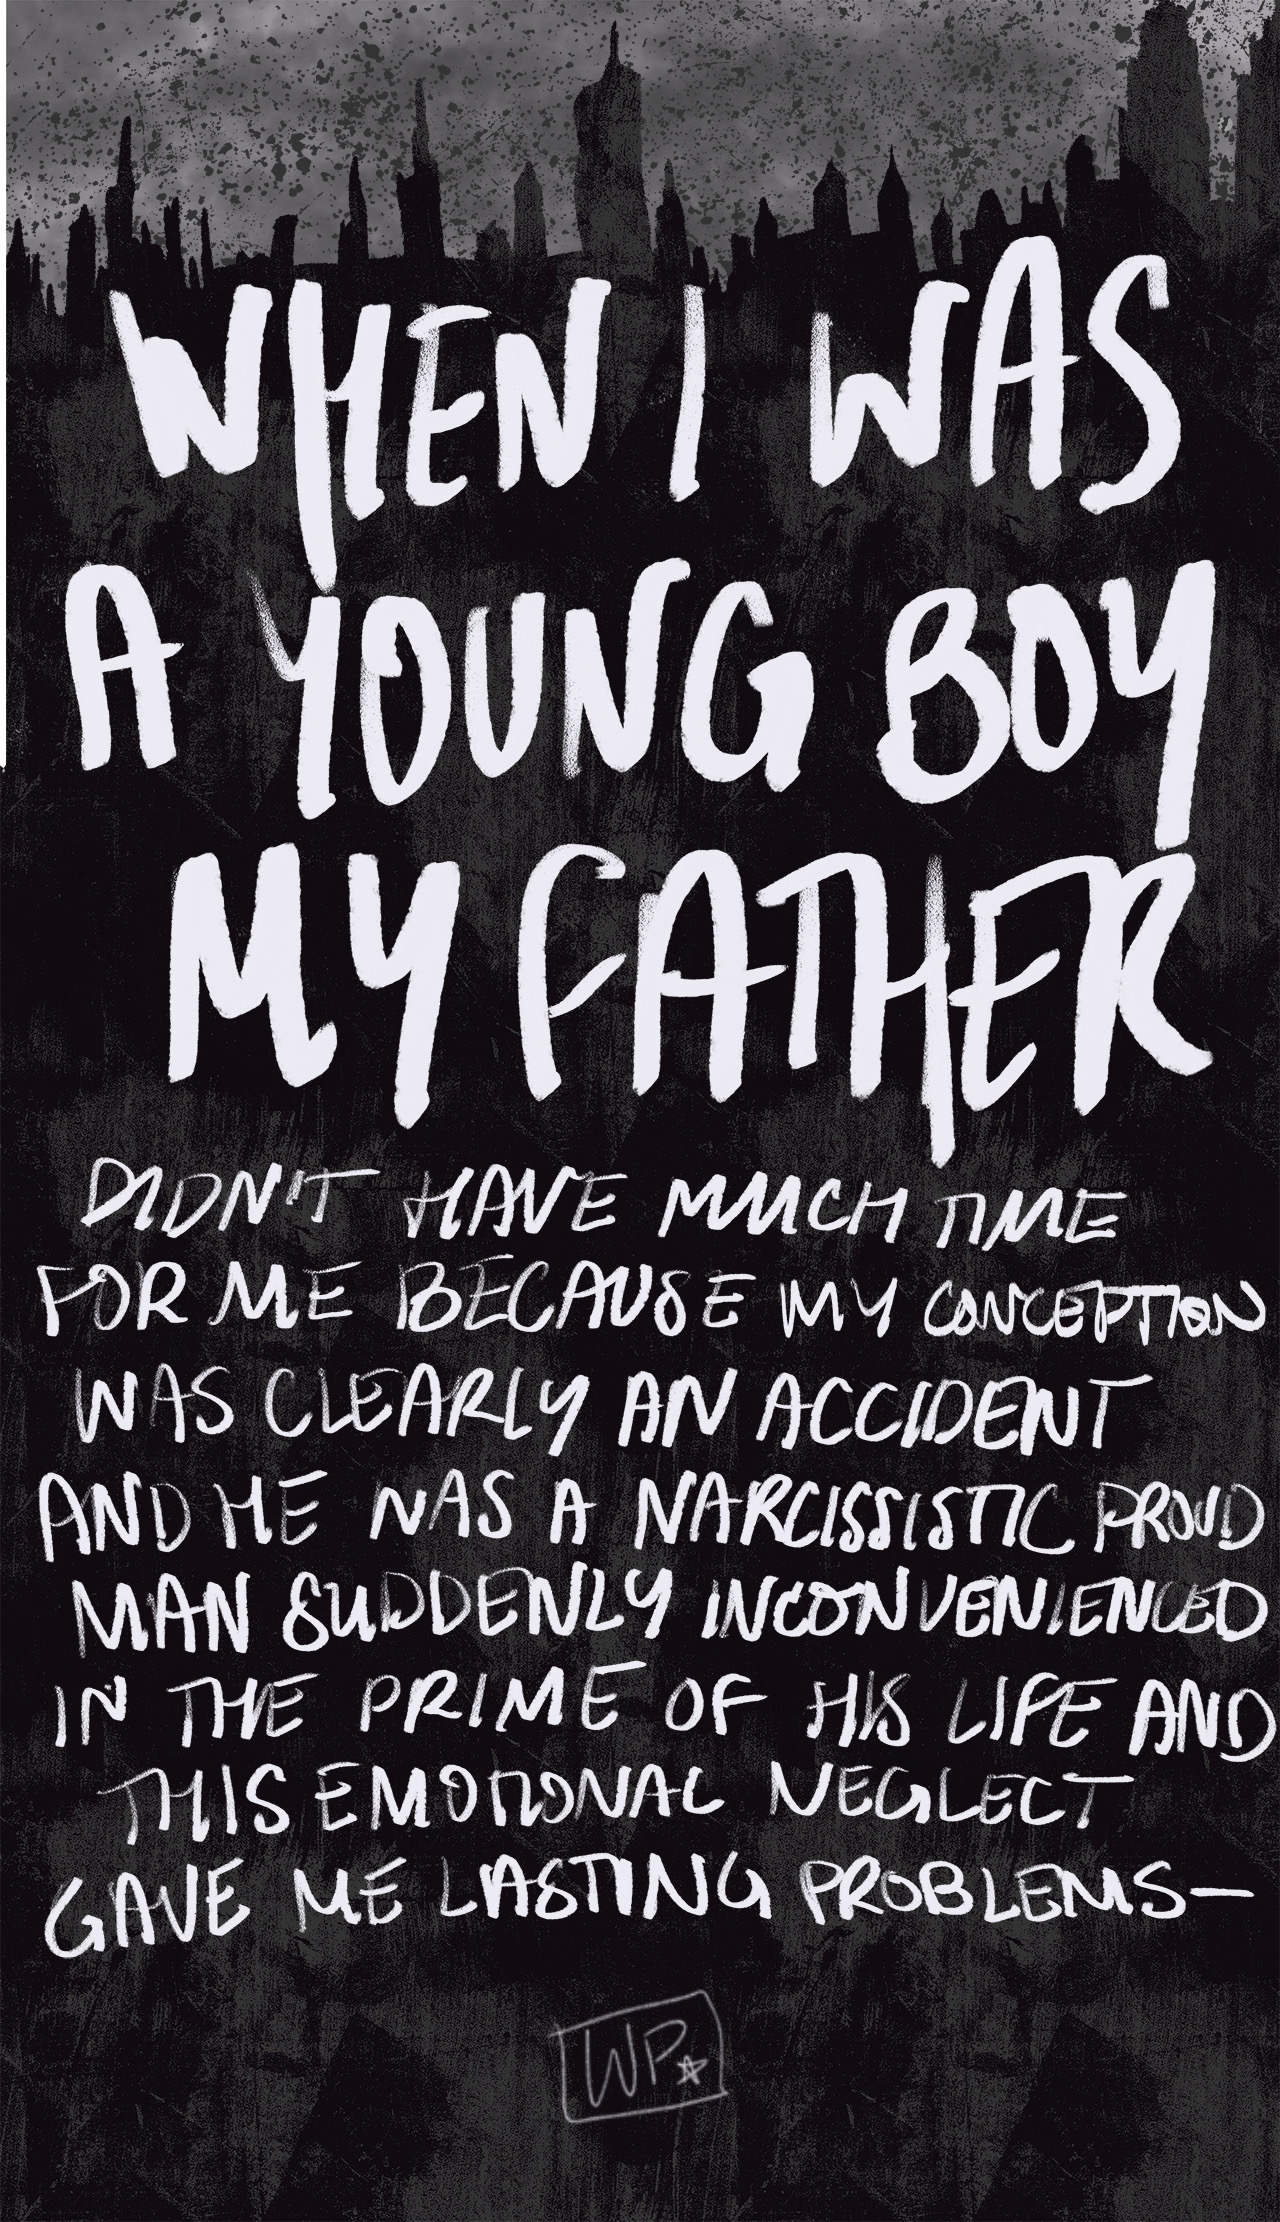 WHEN I WAS
A YOUNG BOY
MY FATHER
DIDN'T HAVE MUCH TIME
FOR ME BECAUSE MY CONCEPTION
WAS CLEARLY AN ACCIDENT
AND HE WAS A NARCISSISTIC PROUD
MAN SUDDENLY INCONVENIENCED
IN THE PRIME OF HIS LIFE AND
THIS EMOTIONAL NEGLECT
GAVE ME LASTING PROBLEMS—
WP